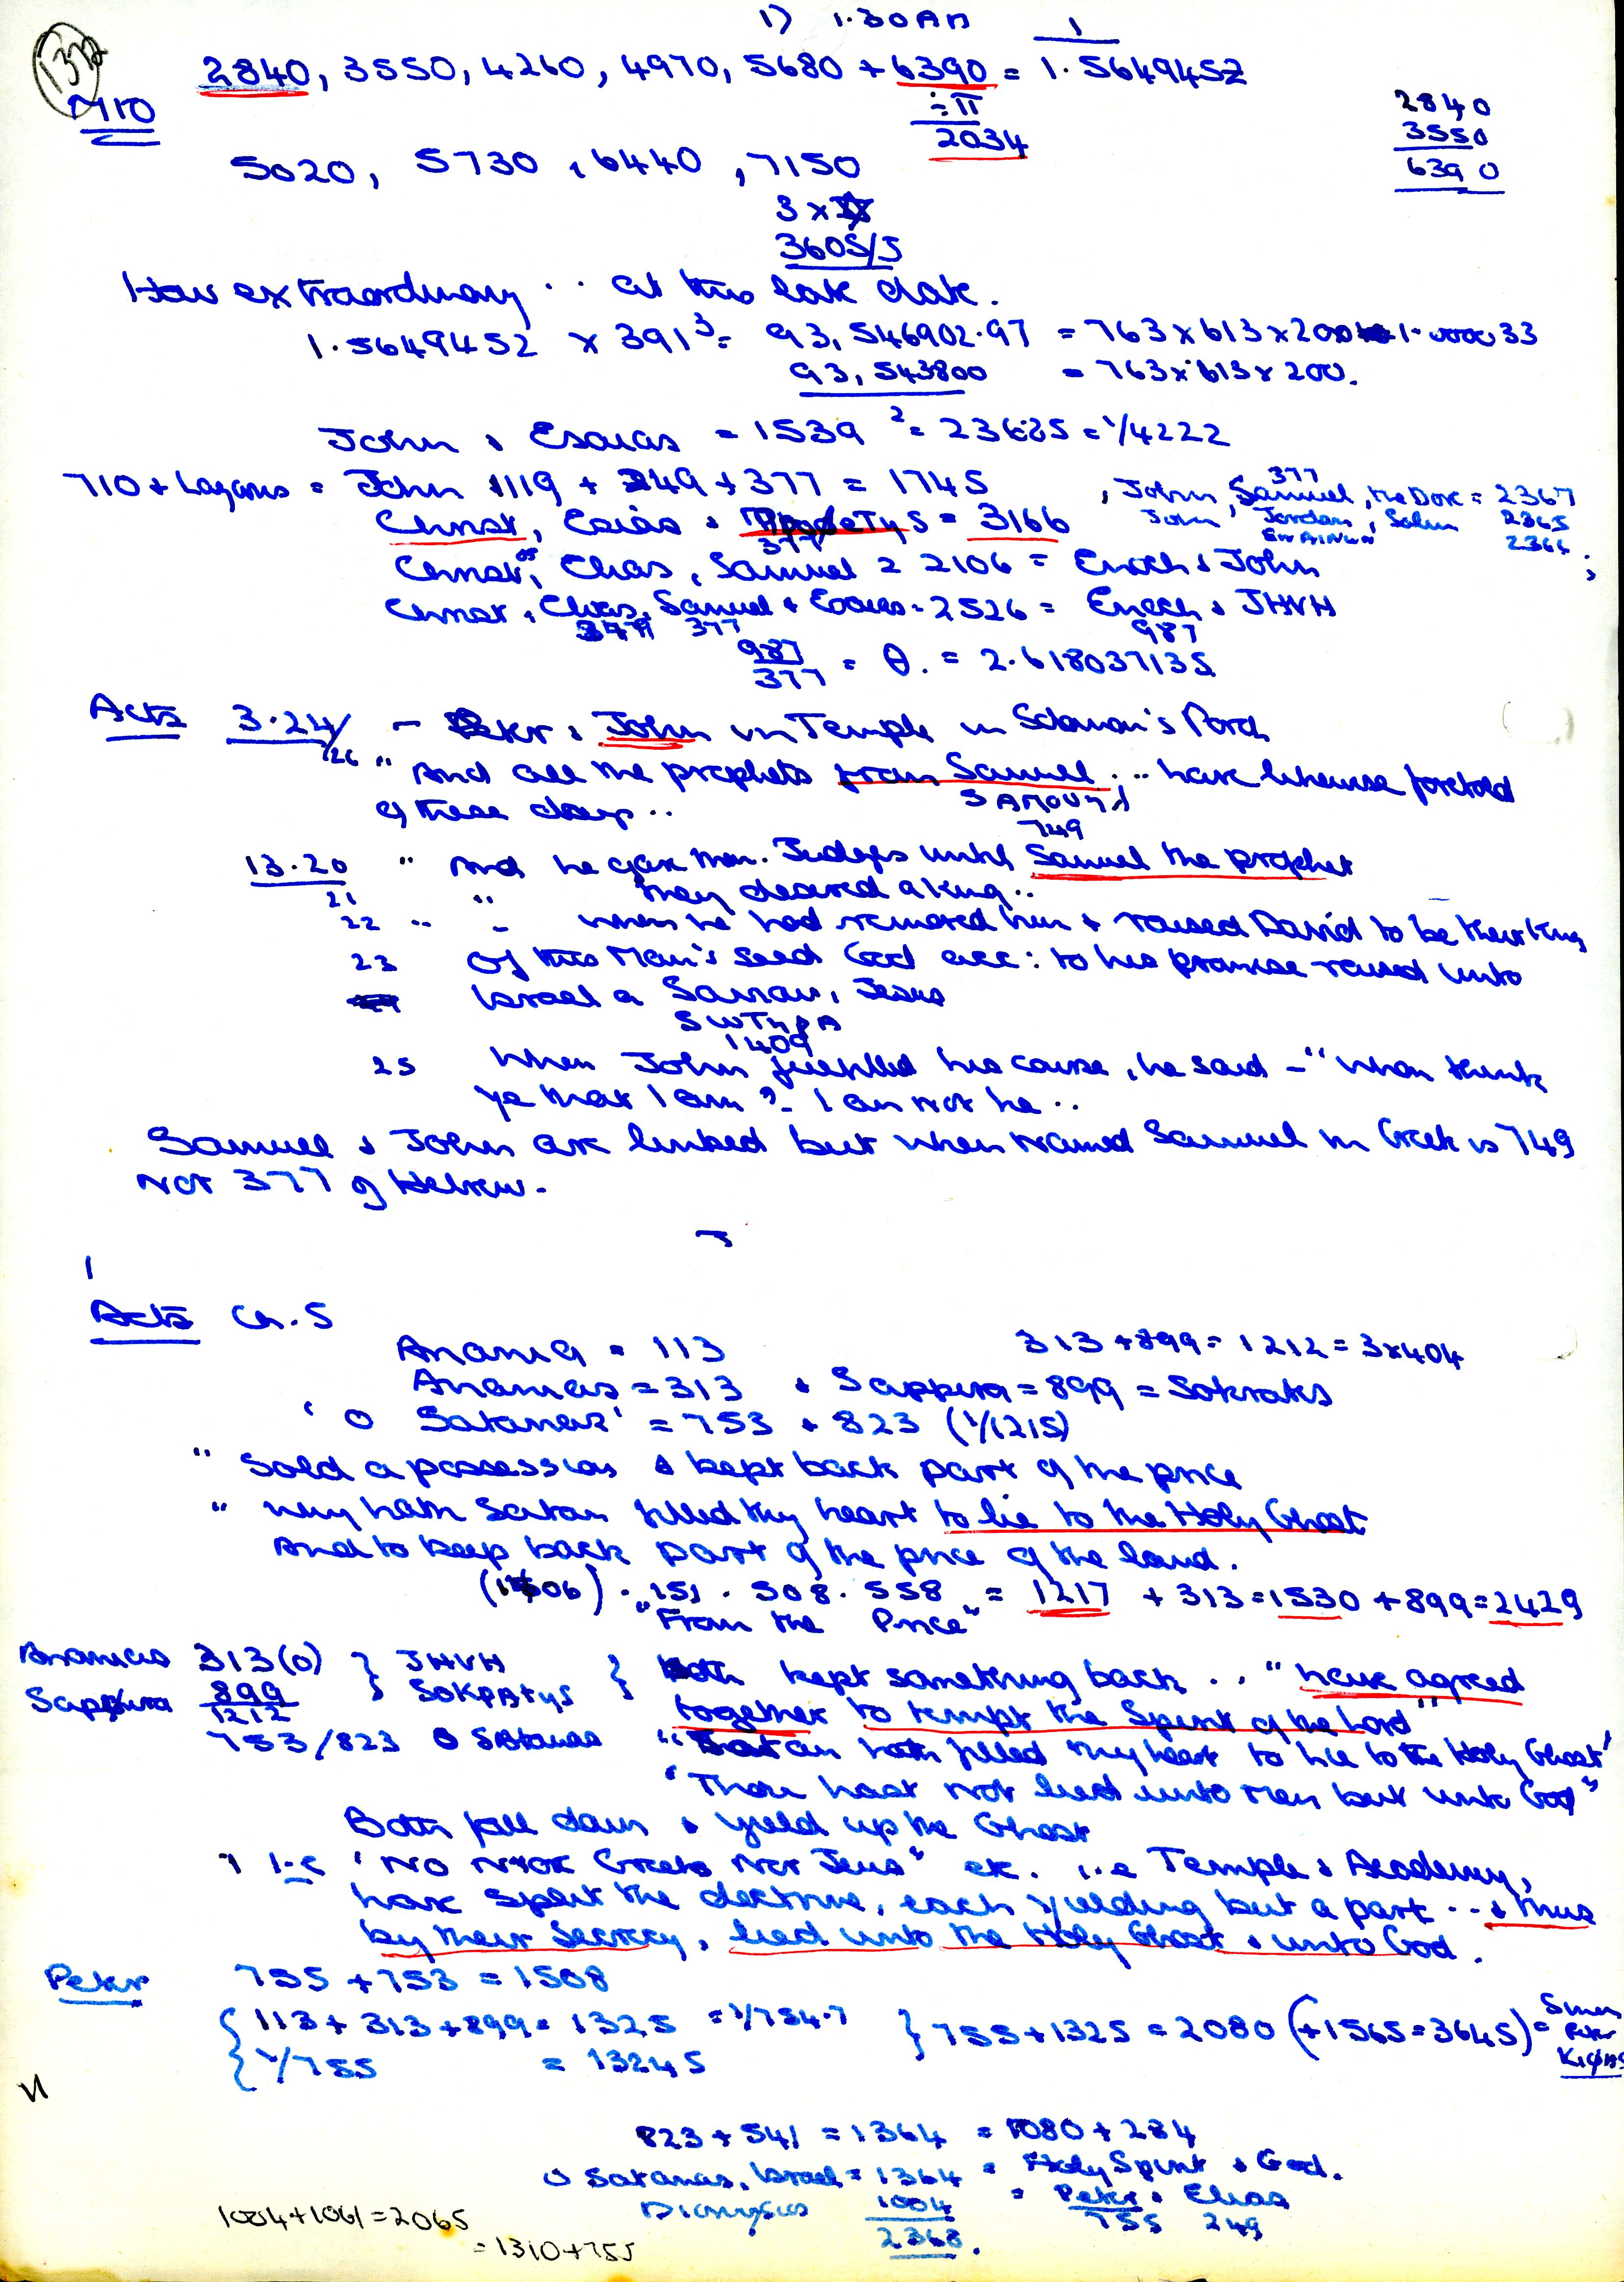 1) 1.30AM
1372
2840, 3550, 4260, 4970, 5680 + 6390 = 1/1.5649452
710
÷π
2034
2840
3550
6390
5020, 5730, 6440, 7150
3 x
3605/5
How extraordinary .. at this late date.
1.5649452 x 391³ = 93,546902.97 = 763x613x200 1.000033
93,543800 = 763x613x200.
John & Esaias = 1539² = 23685 = 1/4222
710 + Lazarus = John 1119 + 249 + 377 = 1745
, John, Samuel, the Dove = 2367
377
John Jordan, Salim 2365
2366
Christ, Esaias & = 3166
377
Christ, Elias, Samuel = 2106 = Enoch & John
Christ, Elias, Samuel & Esaias = 2526 = Enoch & JHVH
377
987
987/377 = θ. = 2.618037135
Acts 3.24/26 - Peter & John in Temple in Solomon's Porch
" And all the prophets from Samuel ... have likewise foretold
of these days ..
SAMOUηλ
749
13.20 " And he gave them Judges until Samuel the prophet
21 " they desired a king ..
22 " - when he had removed him & raised David to be their King
23 Of this Man's seed God acc: to his promise raised unto
Israel a Saviour, Jesus
SWTηρA
1409
25 When John fulfilled his course, he said - "whom think
ye that I am? - I am not he ..
Samuel & John are linked but when named Samuel in Greek is 749
not 377 of Hebrew.
Acts Ch. 5
Anania = 113
313 + 899 = 1212 = 3x404
Ananias = 313 & Sappira = 899 = Sokrates
' O Satanas' = 753 & 823 (1/1215)
" Sold a possession & kept back part of the price
" why hath Satan filled thy heart to lie to the Holy Ghost
And to keep back part of the price of the land.
151 . 508 . 558 = 1217 + 313 = 1530 + 899 = 2429
"From the Price"
Ananias 313(0) } JHVH } Both kept something back .. "have agreed
Sapphira 899 } SOKPATηS together to tempt the Spirit of the Lord"
1212
753/823 O Satanas "Satan hath filled thy heart to lie to the Holy Ghost'
"Thou hast not lied unto Men but unto God"
Both fall down & yield up the Ghost
i.e 'No more Greeks nor Jews" etc. i.e Temple & Academy,
have spilt the doctrine, each yielding but a part ... & thus
by their Secrecy, lied unto the Holy Ghost & unto God.
Peter 755 + 753 = 1508
{ 113 + 313 + 899 = 1325 = 1/754.7 } 755 + 1325 = 2080 (+1565 = 3645) = Simon
Peter
{ 1/755 = 13245
823 + 541 = 1364 = 1080 + 284
O Satanas, Israel = 1364 = Holy Spirit & God.
Dionysius 1004 = Peter & Elias
755 249
2368.
1004+1061 = 2065
= 1310+755